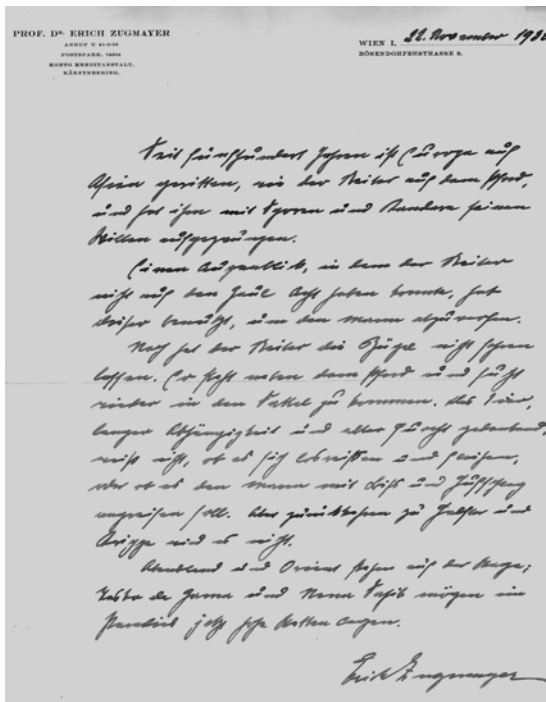 PROF. DR. ERICH ZUGMAYER
ANRUF U 41-9-65
POSTSPARK. 74204
KONTO KREDITANSTALT,
KÄRNTNERRING.
WIEN I, 22. November 193
BÖSENDORFERSTRASSE 8.
Seit fünfhundert Jahren ist Europa auf
Asien geritten, wie der Reiter auf dem Pferd,
und hat ihm mit Sporen und Kandare seinen
Willen aufgezwungen.
Einen Augenblick, in dem der Reiter
nicht auf den Gaul Acht haben konnte, hat
dieser benützt, um den Mann abzuwerfen.
Noch hat der Reiter die Zügel nicht fahren
lassen. Er steht neben dem Pferd und sucht
wieder in den Sattel zu kommen. Das Tier,
langer Abhängigkeit und alter Furcht gedenkend,
weiß nicht, ob es sich losreißen und fliehen,
oder ob es den Mann mit Biss und Hufschlag
angreifen soll. Aber zurückkehren zu Halfter und
Krippe wird es nicht.
Abendland und Orient stehen auf der Waage;
Vasco de Gama und Nena Sahib mögen im
jetzt hohe Wetten legen.
Erich Zugmayer